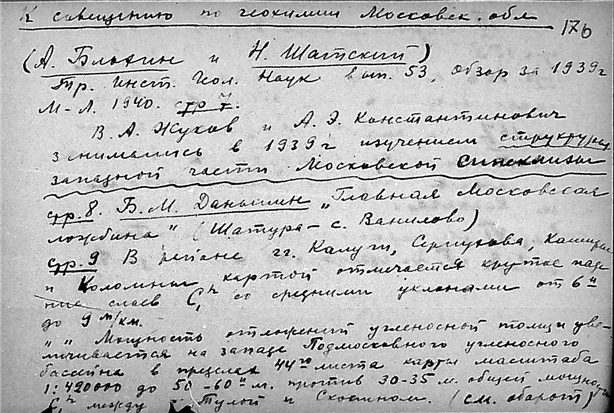 К совещанию по геохимии Московск. обл
176
(А. Блохин и Н. Шатский)
Тр. Инст. Геол. Наук вып. 53, обзор за 1939г
М-Л. 1940. стр 7.
В. А. Жуков и А. Э. Константинович
занимались в 1939 г изучением структуры
западной части Московской синеклизы
стр. 8. Б. М. Даньшин „Главная Московская
ложбина" (Шатура - с. Ванилово)
стр. 9 В районе гг. Калуги, Серпухова, Каширы
и Коломны картой отмечается крутое паде
ние слоев C₁ʰ со средними уклонами от 6 м
до 9 м/км.
" " Мощность отложений угленосной толщи уве
личивается на западе Подмосковного угленосного
бассейна в пределах 44го листа карты масштаба
1:420000 до 50-60 м. против 30-35 м. общей мощнос
C₁ʰ между г. Тулой и Скопином. (см. оборот)